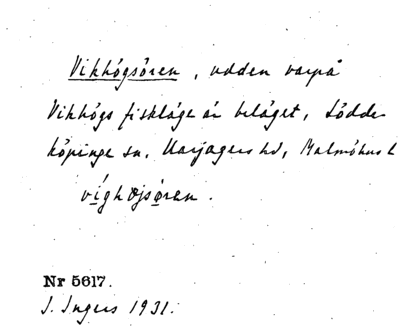 Vikhögsören, udden varpå
Vikhögs fiskläge är beläget, Lödde-
köpinge sn. Harjagers hd, Malmöhus l
víghøjsören.
Nr 5617.
J. Ingers 1931.